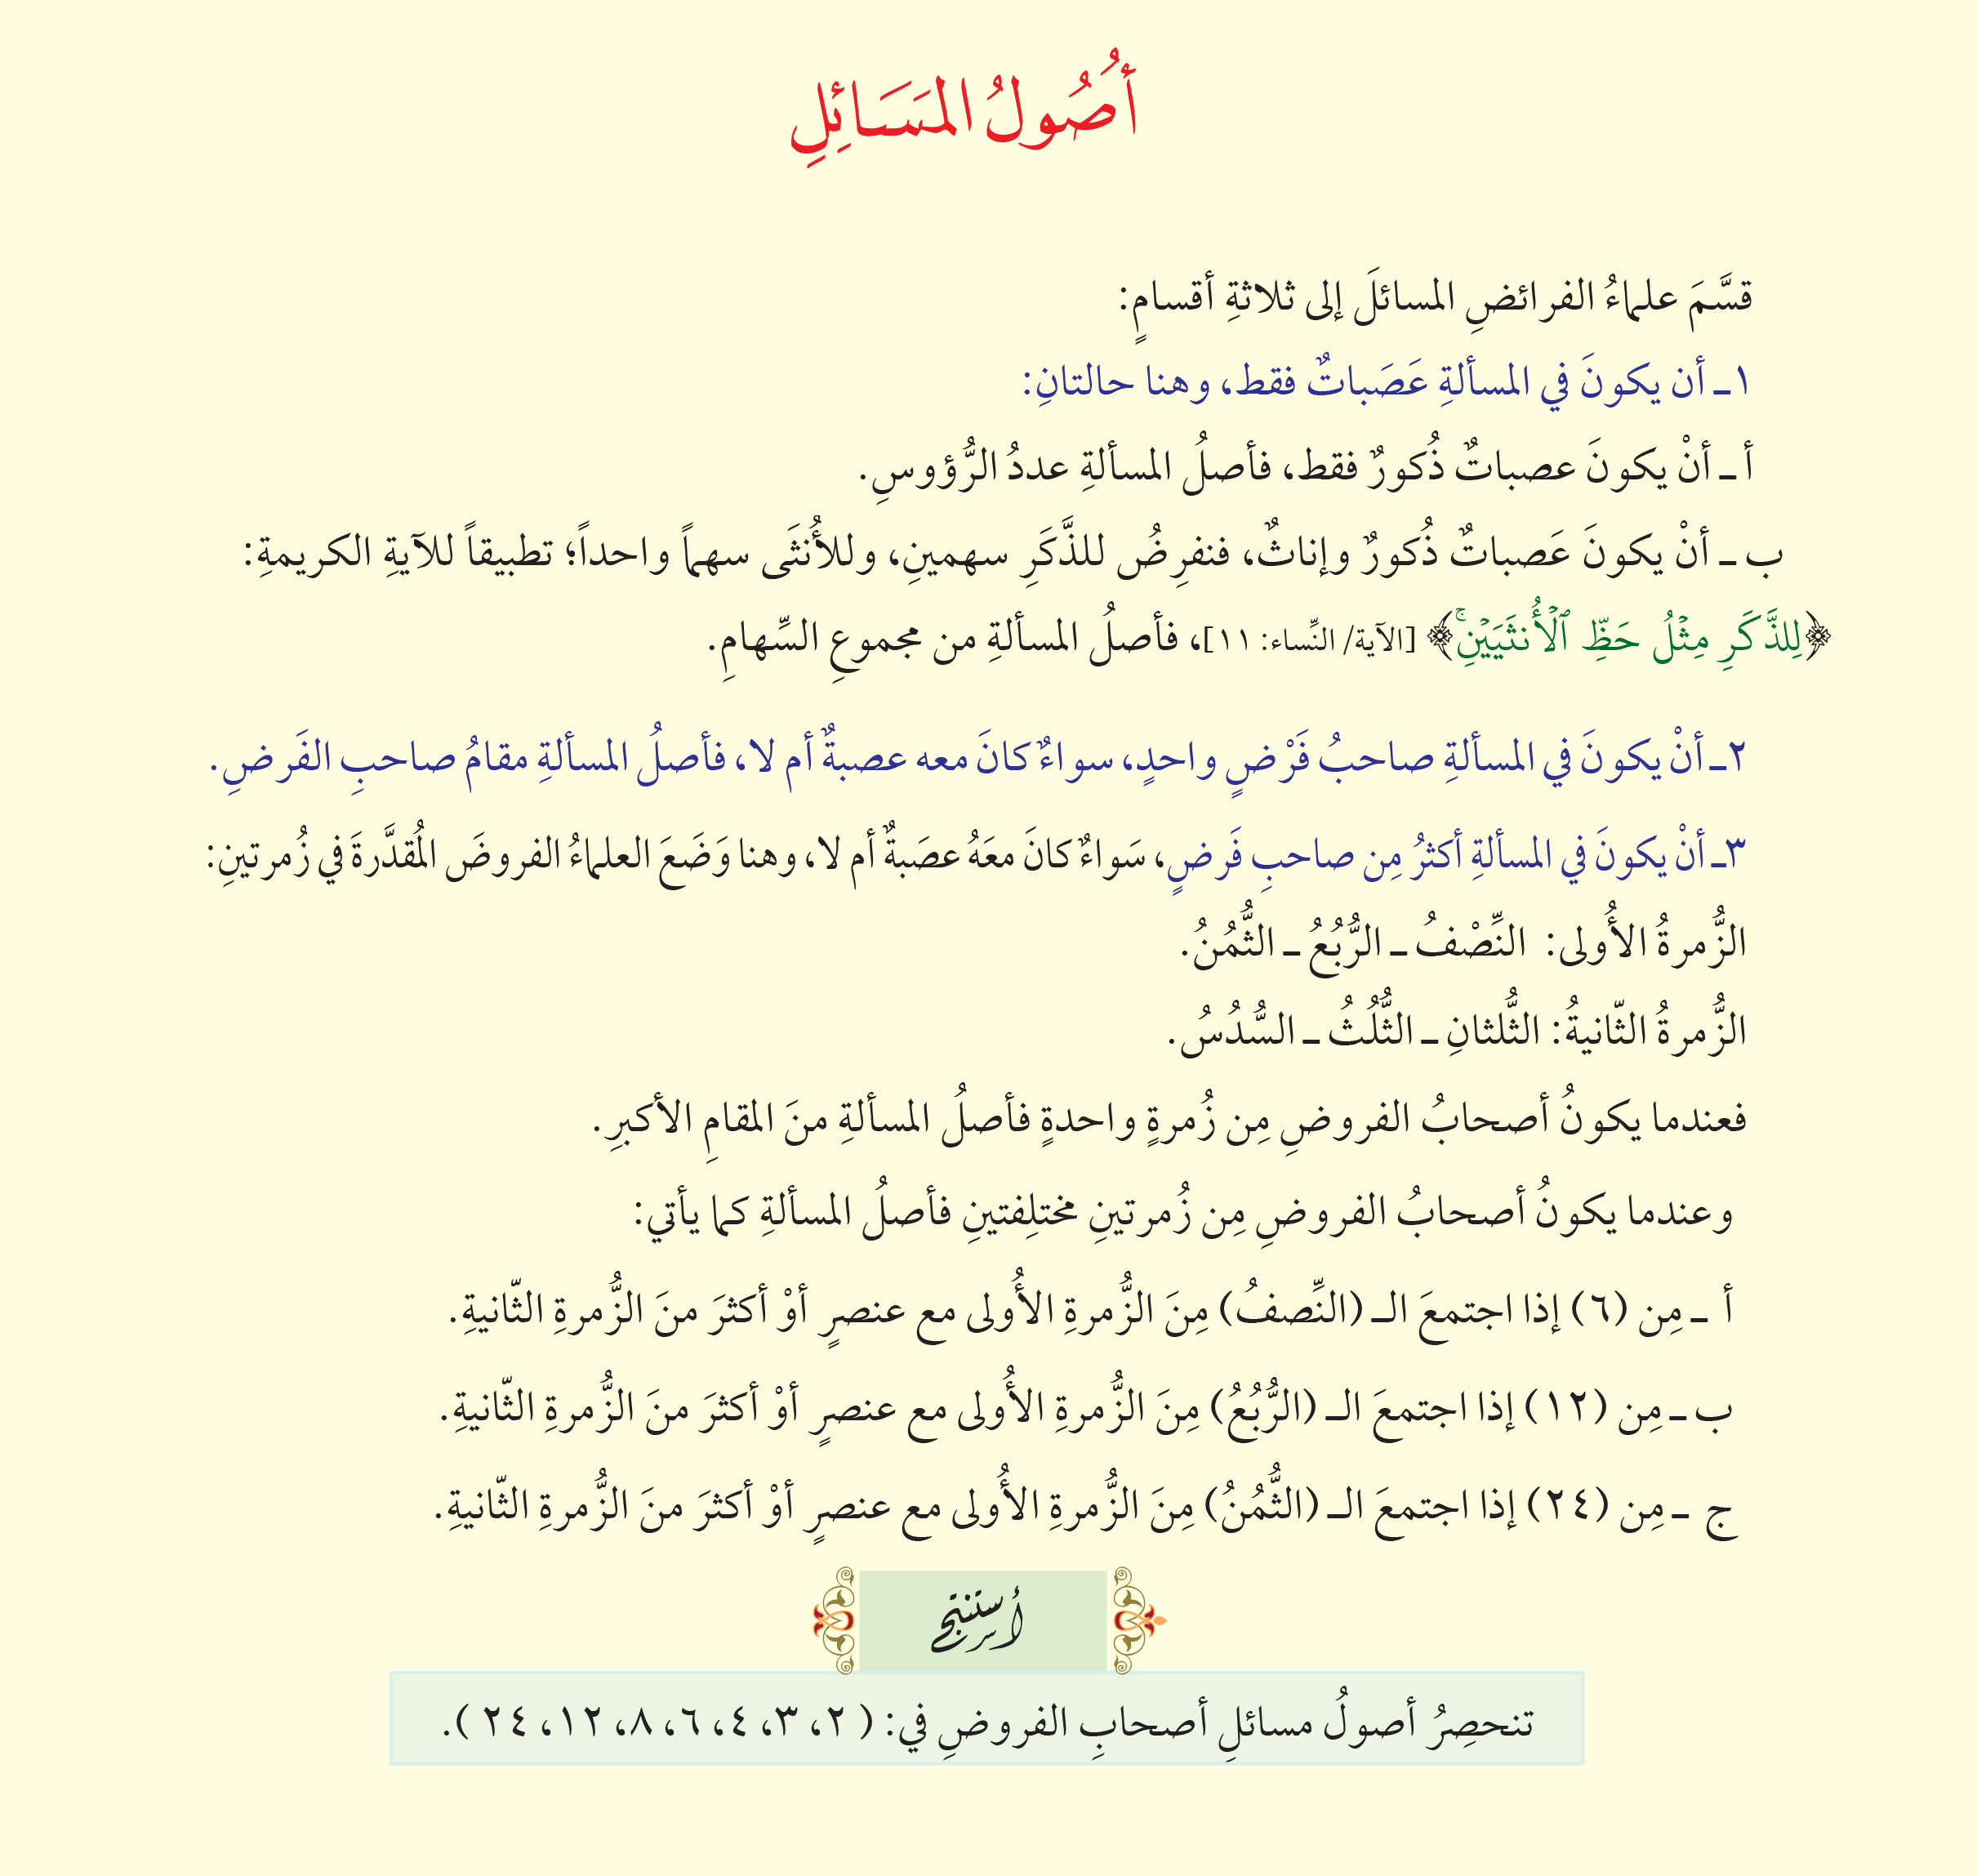 أُصُولُ المَسَائِلِ
قسَّمَ علماءُ الفرائضِ المسائلَ إلى ثلاثةِ أقسامٍ:
١ـ أن يكونَ في المسألةِ عَصَباتٌ فقط، وهنا حالتانِ:
أ ـ أنْ يكونَ عصباتٌ ذُكورٌ فقط، فأصلُ المسألةِ عددُ الرُّؤوسِ.
ب ـ أنْ يكونَ عَصباتٌ ذُكورٌ وإناثٌ، فنفرِضُ للذَّكَرِ سهمينِ، وللأُنثَى سهماً واحداً؛ تطبيقاً للآيةِ الكريمةِ:
﴿لِلذَّكَرِ مِثۡلُ حَظِّ ٱلۡأُنثَيَيۡنِۚ﴾ [الآية/ النِّساء: ١١]، فأصلُ المسألةِ من مجموعِ السِّهامِ.
٢ـ أنْ يكونَ في المسألةِ صاحبُ فَرْضٍ واحدٍ، سواءٌ كانَ معه عصبةٌ أم لا، فأصلُ المسألةِ مقامُ صاحبِ الفَرضِ.
٣ـ أنْ يكونَ في المسألةِ أكثرُ مِن صاحبِ فَرضٍ، سَواءٌ كانَ معَهُ عصَبةٌ أم لا، وهنا وَضَعَ العلماءُ الفروضَ المُقدَّرةَ في زُمرتينِ:
الزُّمرةُ الأُولى: النِّصْفُ ـ الرُّبُعُ ـ الثُّمُنُ.
الزُّمرةُ الثّانيةُ: الثُّلثانِ ـ الثُّلُثُ ـ السُّدُسُ.
فعندما يكونُ أصحابُ الفروضِ مِن زُمرةٍ واحدةٍ فأصلُ المسألةِ منَ المقامِ الأكبرِ.
وعندما يكونُ أصحابُ الفروضِ مِن زُمرتينِ مختلِفتينِ فأصلُ المسألةِ كما يأتي:
أ ـ مِن (٦) إذا اجتمعَ الـ (النِّصفُ) مِنَ الزُّمرةِ الأُولى مع عنصرٍ أوْ أكثرَ منَ الزُّمرةِ الثّانيةِ.
ب ـ مِن (١٢) إذا اجتمعَ الـ (الرُّبُعُ) مِنَ الزُّمرةِ الأُولى مع عنصرٍ أوْ أكثرَ منَ الزُّمرةِ الثّانيةِ.
ج ـ مِن (٢٤) إذا اجتمعَ الـ (الثُّمُنُ) مِنَ الزُّمرةِ الأُولى مع عنصرٍ أوْ أكثرَ منَ الزُّمرةِ الثّانيةِ.
أستنتج
تنحصِرُ أصولُ مسائلِ أصحابِ الفروضِ في: ( ٢، ٣، ٤، ٦، ٨، ١٢، ٢٤ ).